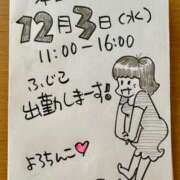 12月3日(水)
11:00-16:00
ふじこ
出勤しまーす!!
よろちんこ